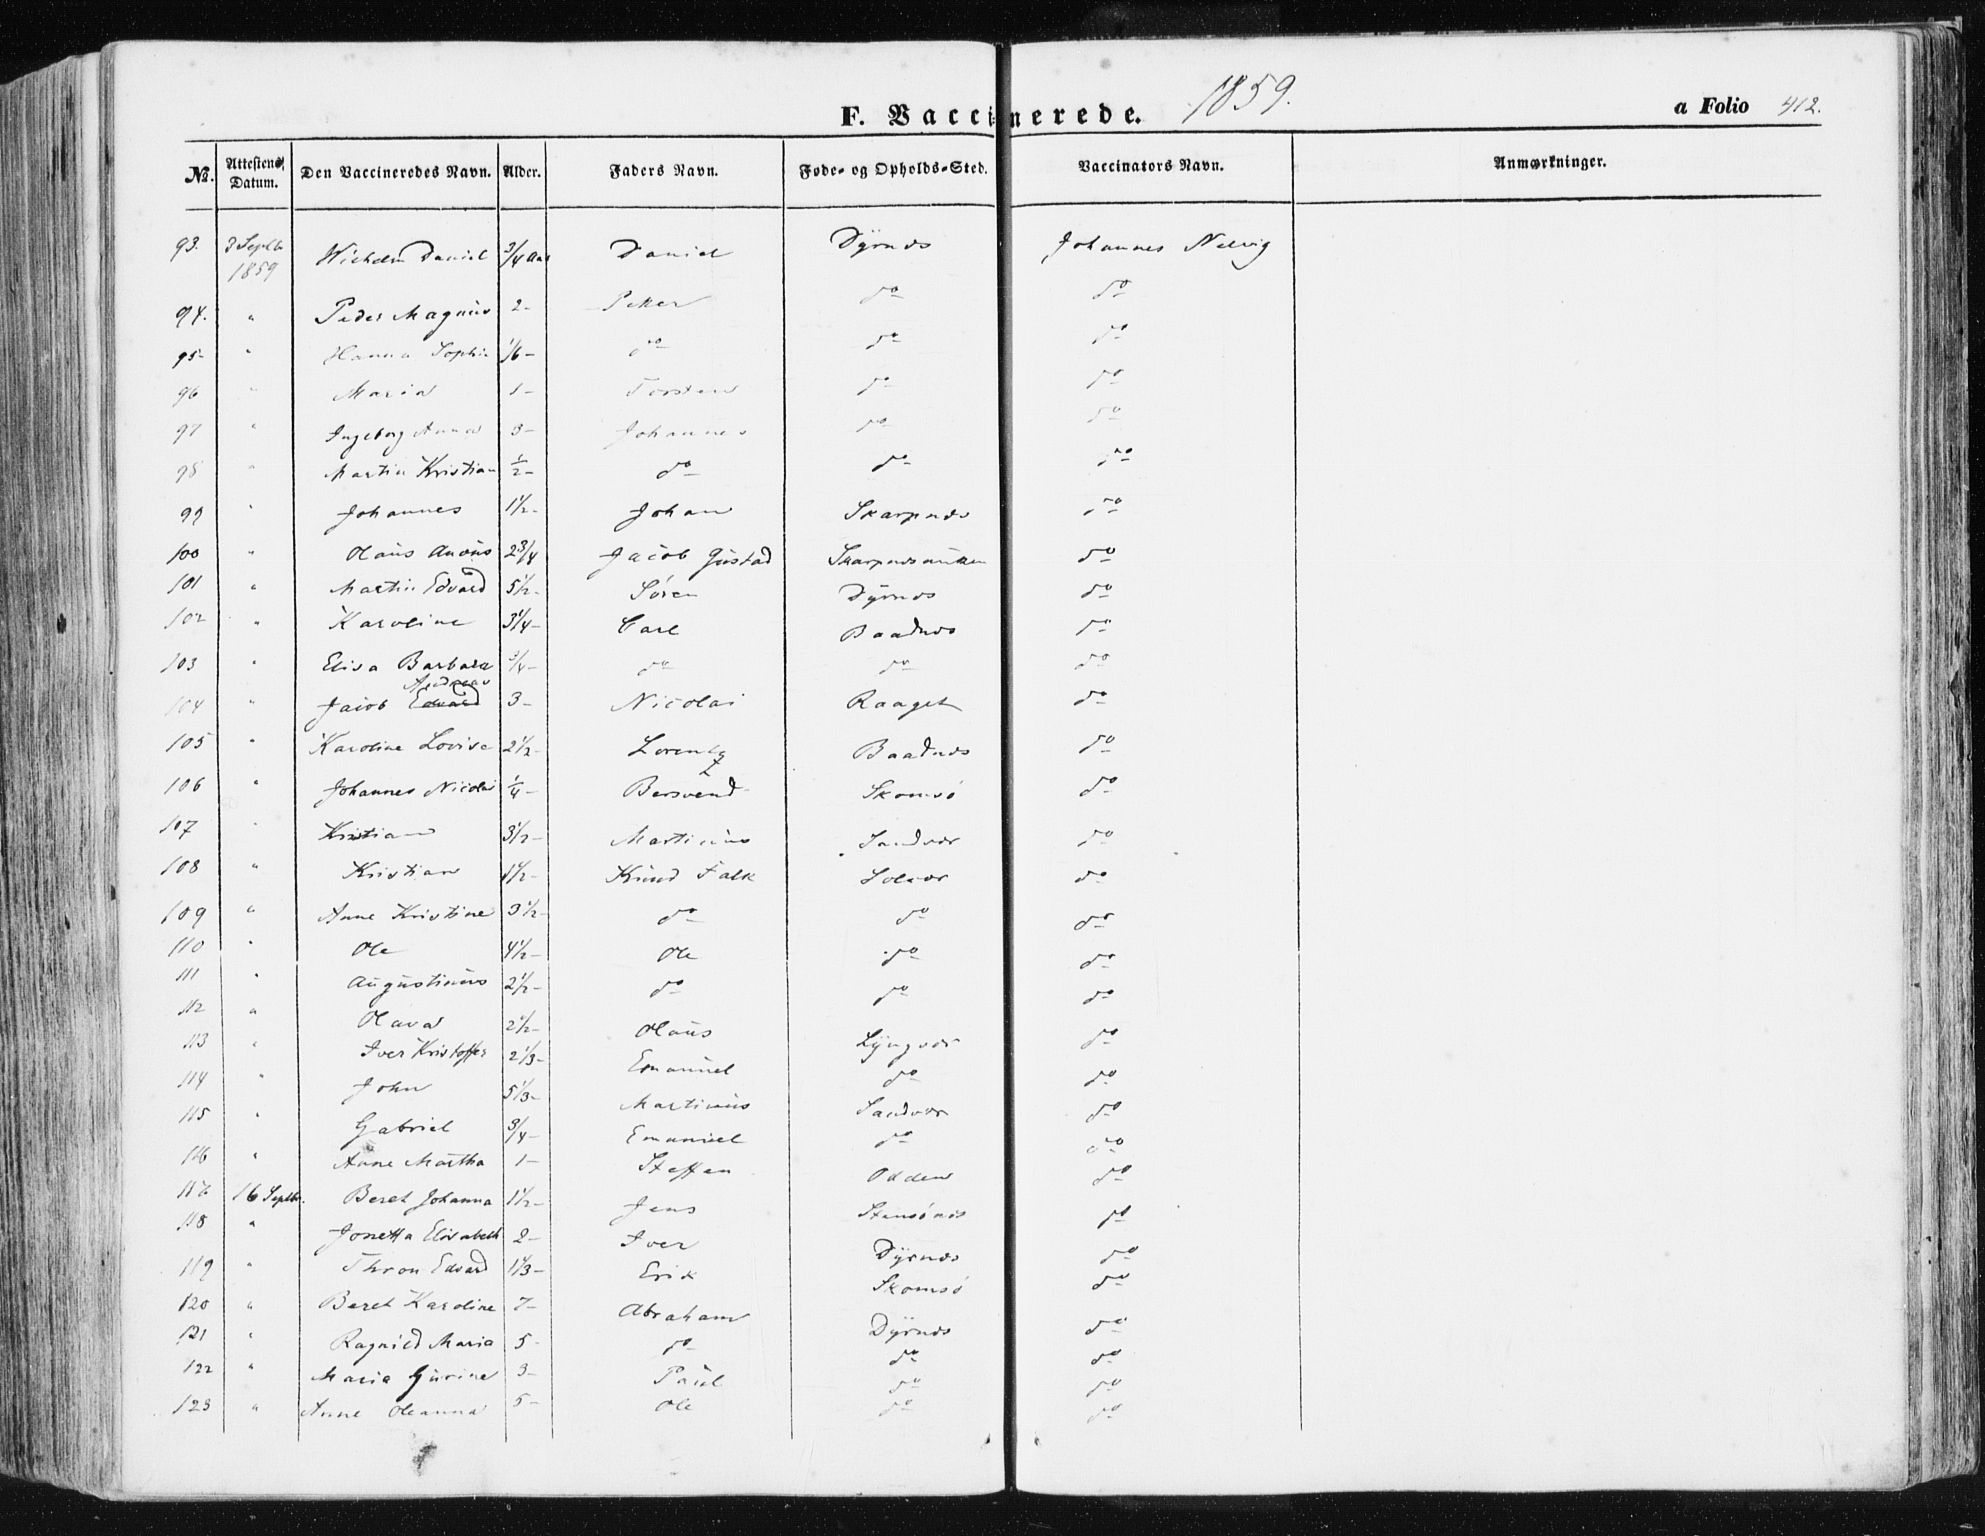 F. Vaccinerede. 1859. a Folio 412.
No. Attestens Datum. Den Vaccineredes Navn. Alder. Faders Navn. Føde- og Opholds-Sted. Vaccinators Navn. Anmærkninger.
93. 3 Septbr 1859 Wichelm Daniel 3/4 Aar Daniel Dÿrnæs Johannes Nelvig
94. " Peder Magnus 2- Peter do do
95- " Hanna Sophie 1/6- do do do
96 " Maria 1- Torsten do do
97 " Ingeborg Anna 3- Johannes do do
98 " Martin Kristian 1/2- do do do
99 " Johannes 1 1/2- Johan Skarpnæs do
100 " Olaus 2 3/4 Jacob Gustad do
101 " Martin Edvard 5 1/2- Sören Dÿrnæs do
102 " Karoline 3 1/4- Carl Baadnæs do
103 " Elisa Barbara 3/4- do do do
Andreas
104 " Jacob Edvard 3- Nicolai Raaget do
105 " Karoline Lovise 2 1/2- Lorentz Baadnæs do
106 " Johannes Nicolai 1/4- Bersvend Skomsö do
107 " Kristian 3 1/2- Martinus Sandvær do
108 " Kristian 1 1/2- Knud Falk Solvær do
109 " Anne Kristine 3 1/2- do do do
110 " Ole 4 1/2- Ole do do
111 " Augustinus 2 1/2- do do do
112 " Olava 2 1/2- Olaus Lÿngvær do
113 " Iver Kristoffer 2 1/3- Emanuel do do
114 " John 5 1/3- Martinus Sandvær do
115 " Gabriel 3/4- Emanuel do do
116 " Anne Martha 1- Steffen Odden do
117 16 Septbr. Beret Johanna 1 1/2- Jens Stensönæs do
118 " Jonetta Elisabeth 2- Iver Dÿrnæs do
119 " Thron Edvard 1 1/3- Erik Skomsö do
120 " Beret Karoline 7- Abraham Dÿrnæs do
121 " Ragnild Maria 5- do do do
122 " Maria Gurine 3- Paul do do
123 " Anne Oleanna 5- Ole do do